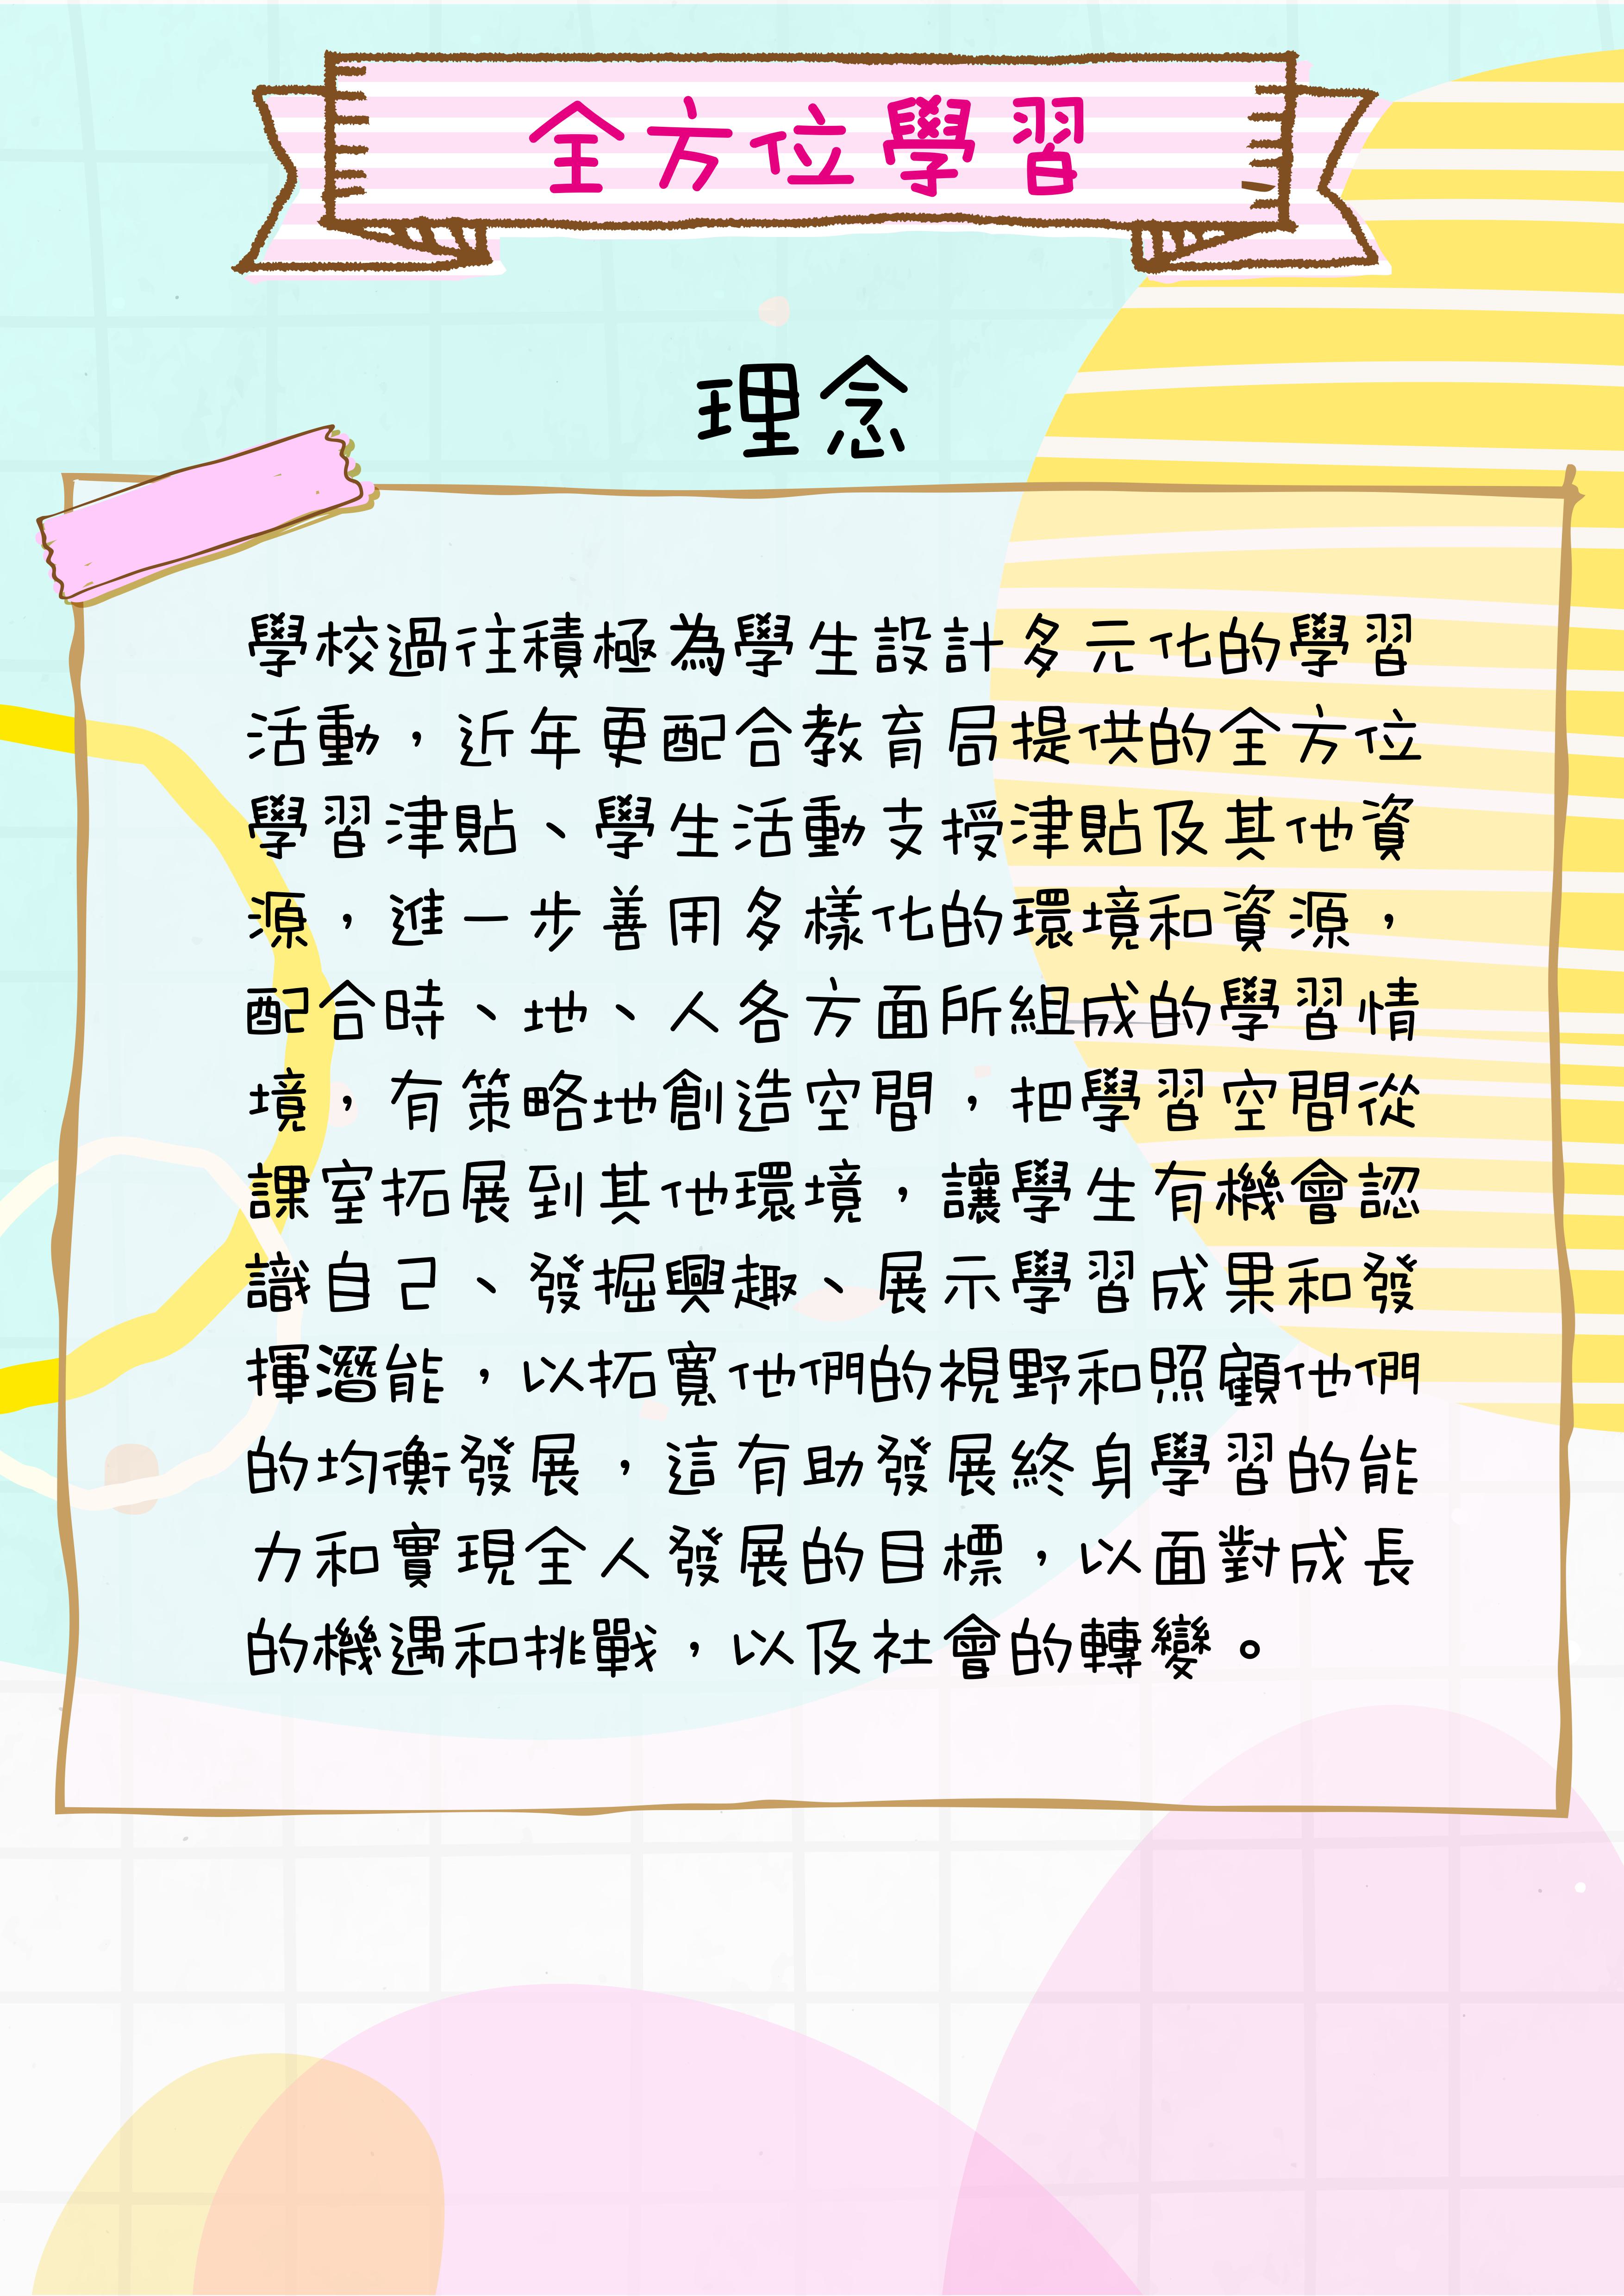 全方位學習
理念
學校過往積極為學生設計多元化的學習
活動，近年更配合教育局提供的全方位
學習津貼、學生活動支授津貼及其他資
源，進一步善用多樣化的環境和資源，
配合時、地、人各方面所組成的學習情
境，有策略地創造空間，把學習空間從
課室拓展到其他環境，讓學生有機會認
識自己、發掘興趣、展示學習成果和發
揮潛能，以拓寬他們的視野和照顧他們
的均衡發展，這有助發展終身學習的能
力和實現全人發展的目標，以面對成長
的機遇和挑戰，以及社會的轉變。